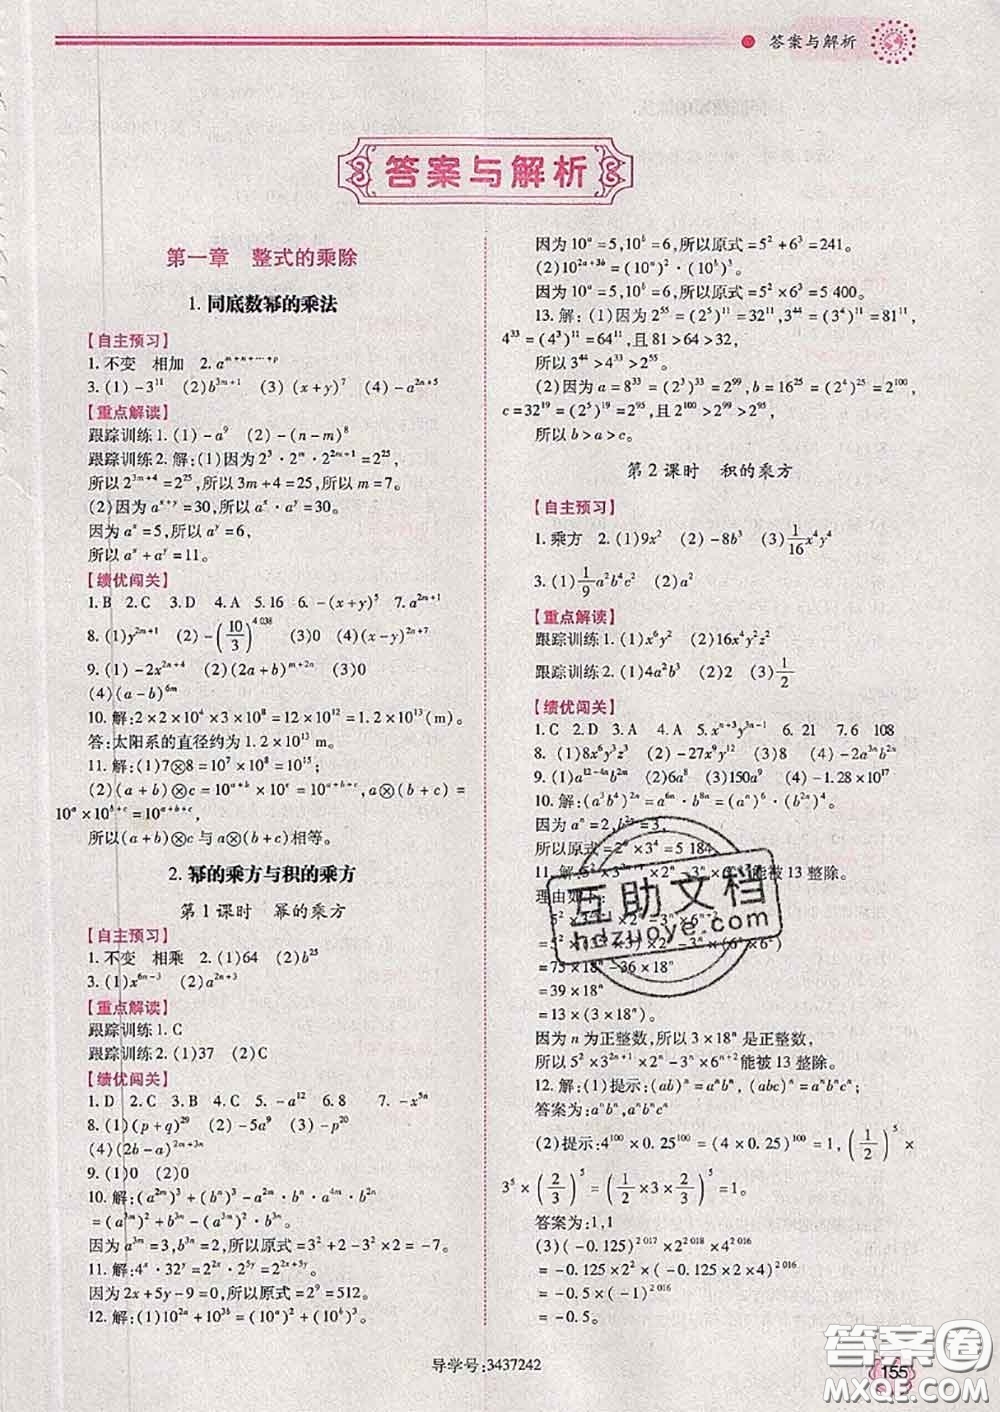 答案与解析
答案与解析
第一章 整式的乘除
1. 同底数幂的乘法
【自主预习】
1. 不变 相加 2. a^{m+n+…+p}
3. (1) -3^{11} (2) b^{3m+1} (3) (x+y)^7 (4) -a^{2n+5}
【重点解读】
跟踪训练1. (1) -a^9 (2) -(n-m)^8
跟踪训练2. 解:(1)因为 2^3·2^m·2^{2m+1}=2^{25},
所以 2^{3m+4}=2^{25},所以 3m+4=25,所以 m=7。
(2)因为 a^{x+y}=30,所以 a^x·a^y=30,
因为 a^x=5,所以 a^y=6,
所以 a^x+a^y=11。
【绩优闯关】
1. B 2. C 3. D 4. A 5. 16 6. -(x+y)^5 7. a^{2m+1}
8. (1) y^{2m+1} (2) -(10/3)^{4 038} (3) 0 (4) (x-y)^{2n+7}
9. (1) -2x^{2n+4} (2) (2a+b)^{m+2n} (3) 0
(4) (a-b)^{6m}
10. 解:2×2×10^4×3×10^8=12×10^{12}=1.2×10^{13}(m)。
答:太阳系的直径约为 1.2×10^{13} m。
11. 解:(1)7⊗8=10^7×10^8=10^{15};
(2)(a+b)⊗c=10^{a+b}×10^c=10^{a+b+c},a⊗(b+c)=
10^a×10^{b+c}=10^{a+b+c},
所以(a+b)⊗c 与 a⊗(b+c)相等。
2. 幂的乘方与积的乘方
第1课时 幂的乘方
【自主预习】
1. 不变 相乘 2. (1)64 (2)b^{25}
3. (1)x^{6n-3} (2)a^{2n+3}
【重点解读】
跟踪训练1. C
跟踪训练2. (1)37 (2)C
【绩优闯关】
1. D 2. C 3. B 4. C 5. -a^{12} 6. 8 7. -x^{5n}
8. (1)(p+q)^{29} (2)-5a^9 (3)-p^{20}
(4)(2b-a)^{2m+3n}
9. (1)0 (2)0
10. 解:(a^{2m})^3+(b^n)^3-a^{2m}·b^n·a^{4m}·b^{2n}
=(a^{3m})^2+b^{3n}-(a^{3m})^2·b^{3n}。
因为 a^{3m}=3,b^{3n}=2,所以原式=3^2+2-3^2×2=-7。
11. 解:4^x·32^y=2^{2x}·2^{5y}=2^{2x+5y}。
因为 2x+5y-9=0,所以原式=2^9=512。
12. 解:(1)10^{2a}+10^{3b}=(10^a)^2+(10^b)^3,
因为 10^a=5,10^b=6,所以原式=5^2+6^3=241。
(2)10^{2a+3b}=(10^a)^2·(10^b)^3,
因为 10^a=5,10^b=6,所以原式=5^2×6^3=5 400。
13. 解:(1)因为 2^{55}=(2^5)^{11}=32^{11},3^{44}=(3^4)^{11}=81^{11},
4^{33}=(4^3)^{11}=64^{11},且 81>64>32,
所以 3^{44}>4^{33}>2^{55}。
(2)因为 a=8^{33}=(2^3)^{33}=2^{99},b=16^{25}=(2^4)^{25}=2^{100},
c=32^{19}=(2^5)^{19}=2^{95},且 2^{100}>2^{99}>2^{95},
所以 b>a>c。
第2课时 积的乘方
【自主预习】
1. 乘方 2. (1)9x^2 (2)-8b^3 (3)1/16 x^4y^4
3. (1)1/9 a^2b^4c^2 (2)a^2
【重点解读】
跟踪训练1. (1)x^6y^2 (2)16x^4y^2z^2
跟踪训练2. (1)4a^2b^3 (2)2 (3)1/2
【绩优闯关】
1. C 2. D 3. A 4. A 5. x^{n+3}y^{3n-1} 6. 21 7. 6 108
8. (1)8x^6y^3z^3 (2)-27x^9y^{12} (3)8 (4)-2a^{3n}b^{2n}
9. (1)a^{12-4n}b^{2m} (2)6a^8 (3)150a^9 (4)-1.28×10^{17}
10. 解:(a^3b^4)^{2n}=a^{6n}·b^{8n}=(a^n)^6·(b^{2n})^4。
因为 a^n=2,b^{2n}=3,
所以原式=2^6×3^4=5 184。
11. 解:5^2×3^{2n+1}×2^n-3^n×6^{n+2}能被13整除。
理由如下:
5^2×3^{2n+1}×2^n-3^n×6^{n+2}
=5^2×(3^{2n}×3)×2^n-3^n×(6^n×6^2)
=75×18^n-36×18^n
=39×18^n
=13×(3×18^n)。
因为 n 为正整数,所以 3×18^n 是正整数,
所以 5^2×3^{2n+1}×2^n-3^n×6^{n+2}能被13整除。
12. 解:(1)提示:(ab)^n=a^nb^n,(abc)^n=a^nb^nc^n;
答案为:a^nb^n,a^nb^nc^n
(2)提示:4^{100}×0.25^{100}=(4×0.25)^{100}=1,(1/2)^5×
3^5×(2/3)^5=(1/2×3×2/3)^5=1。
答案为:1,1
(3)(-0.125)^{2 017}×2^{2 018}×4^{2 016}
=-0.125×2^2×(-0.125×2×4)^{2 016}
=-0.5×(-1)^{2 016}
=-0.5。
互助文档
hdzuoye.com
导学号:3437242
155
答案圈
MXQE.COM